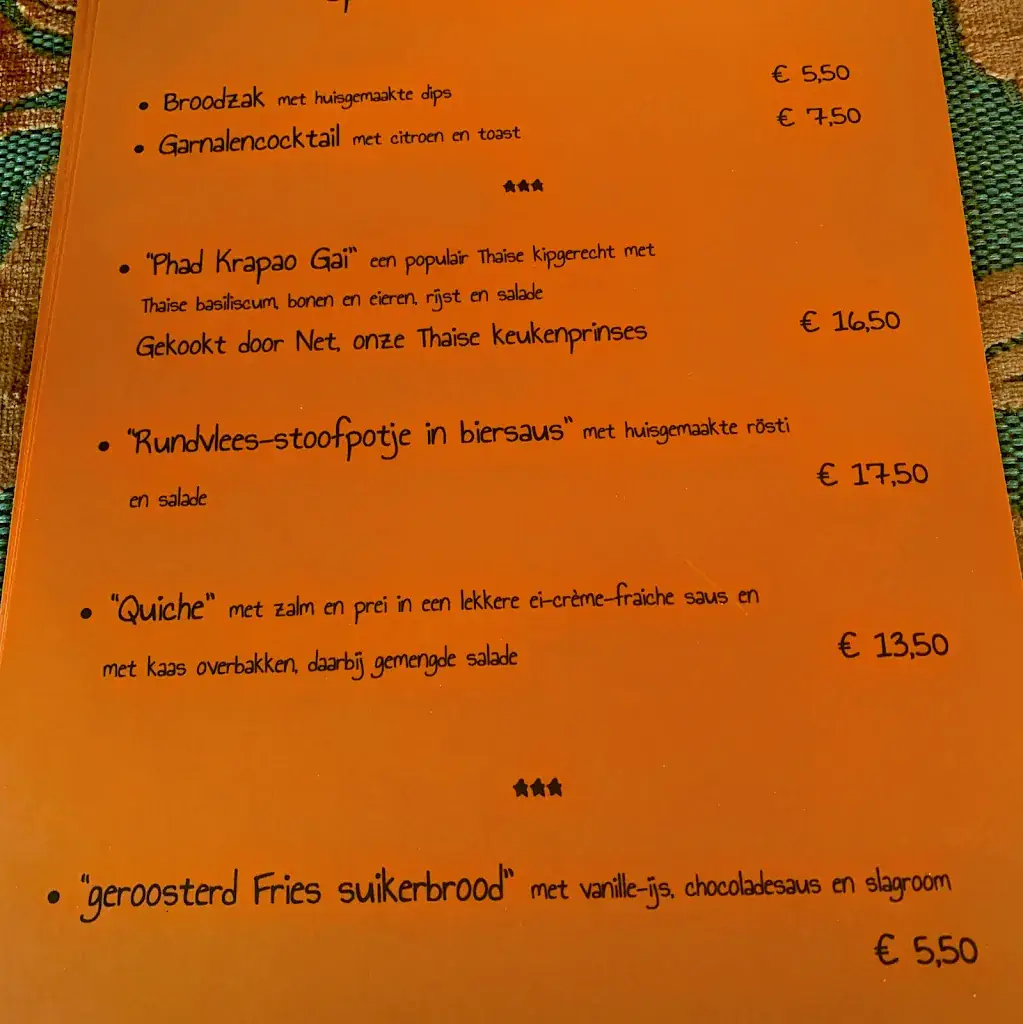 • Broodzak met huisgemaakte dips € 5,50
• Garnalencocktail met citroen en toast € 7,50
***
• "Phad Krapao Gai" een populair Thaise kipgerecht met
Thaise basiliscum, bonen en eieren, rijst en salade
Gekookt door Net, onze Thaise keukenprinses € 16,50
• "Rundvlees-stoofpotje in biersaus" met huisgemaakte rösti
€ 17,50
en salade
• "Quiche" met zalm en prei in een lekkere ei-crème-fraiche saus en
met kaas overbakken, daarbij gemengde salade € 13,50
***
• "geroosterd Fries suikerbrood" met vanille-ijs, chocoladesaus en slagroom
€ 5,50